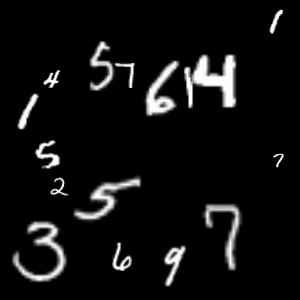 1
4 5 7 6 1 4
1
5 7
2 5
3 6 9 7